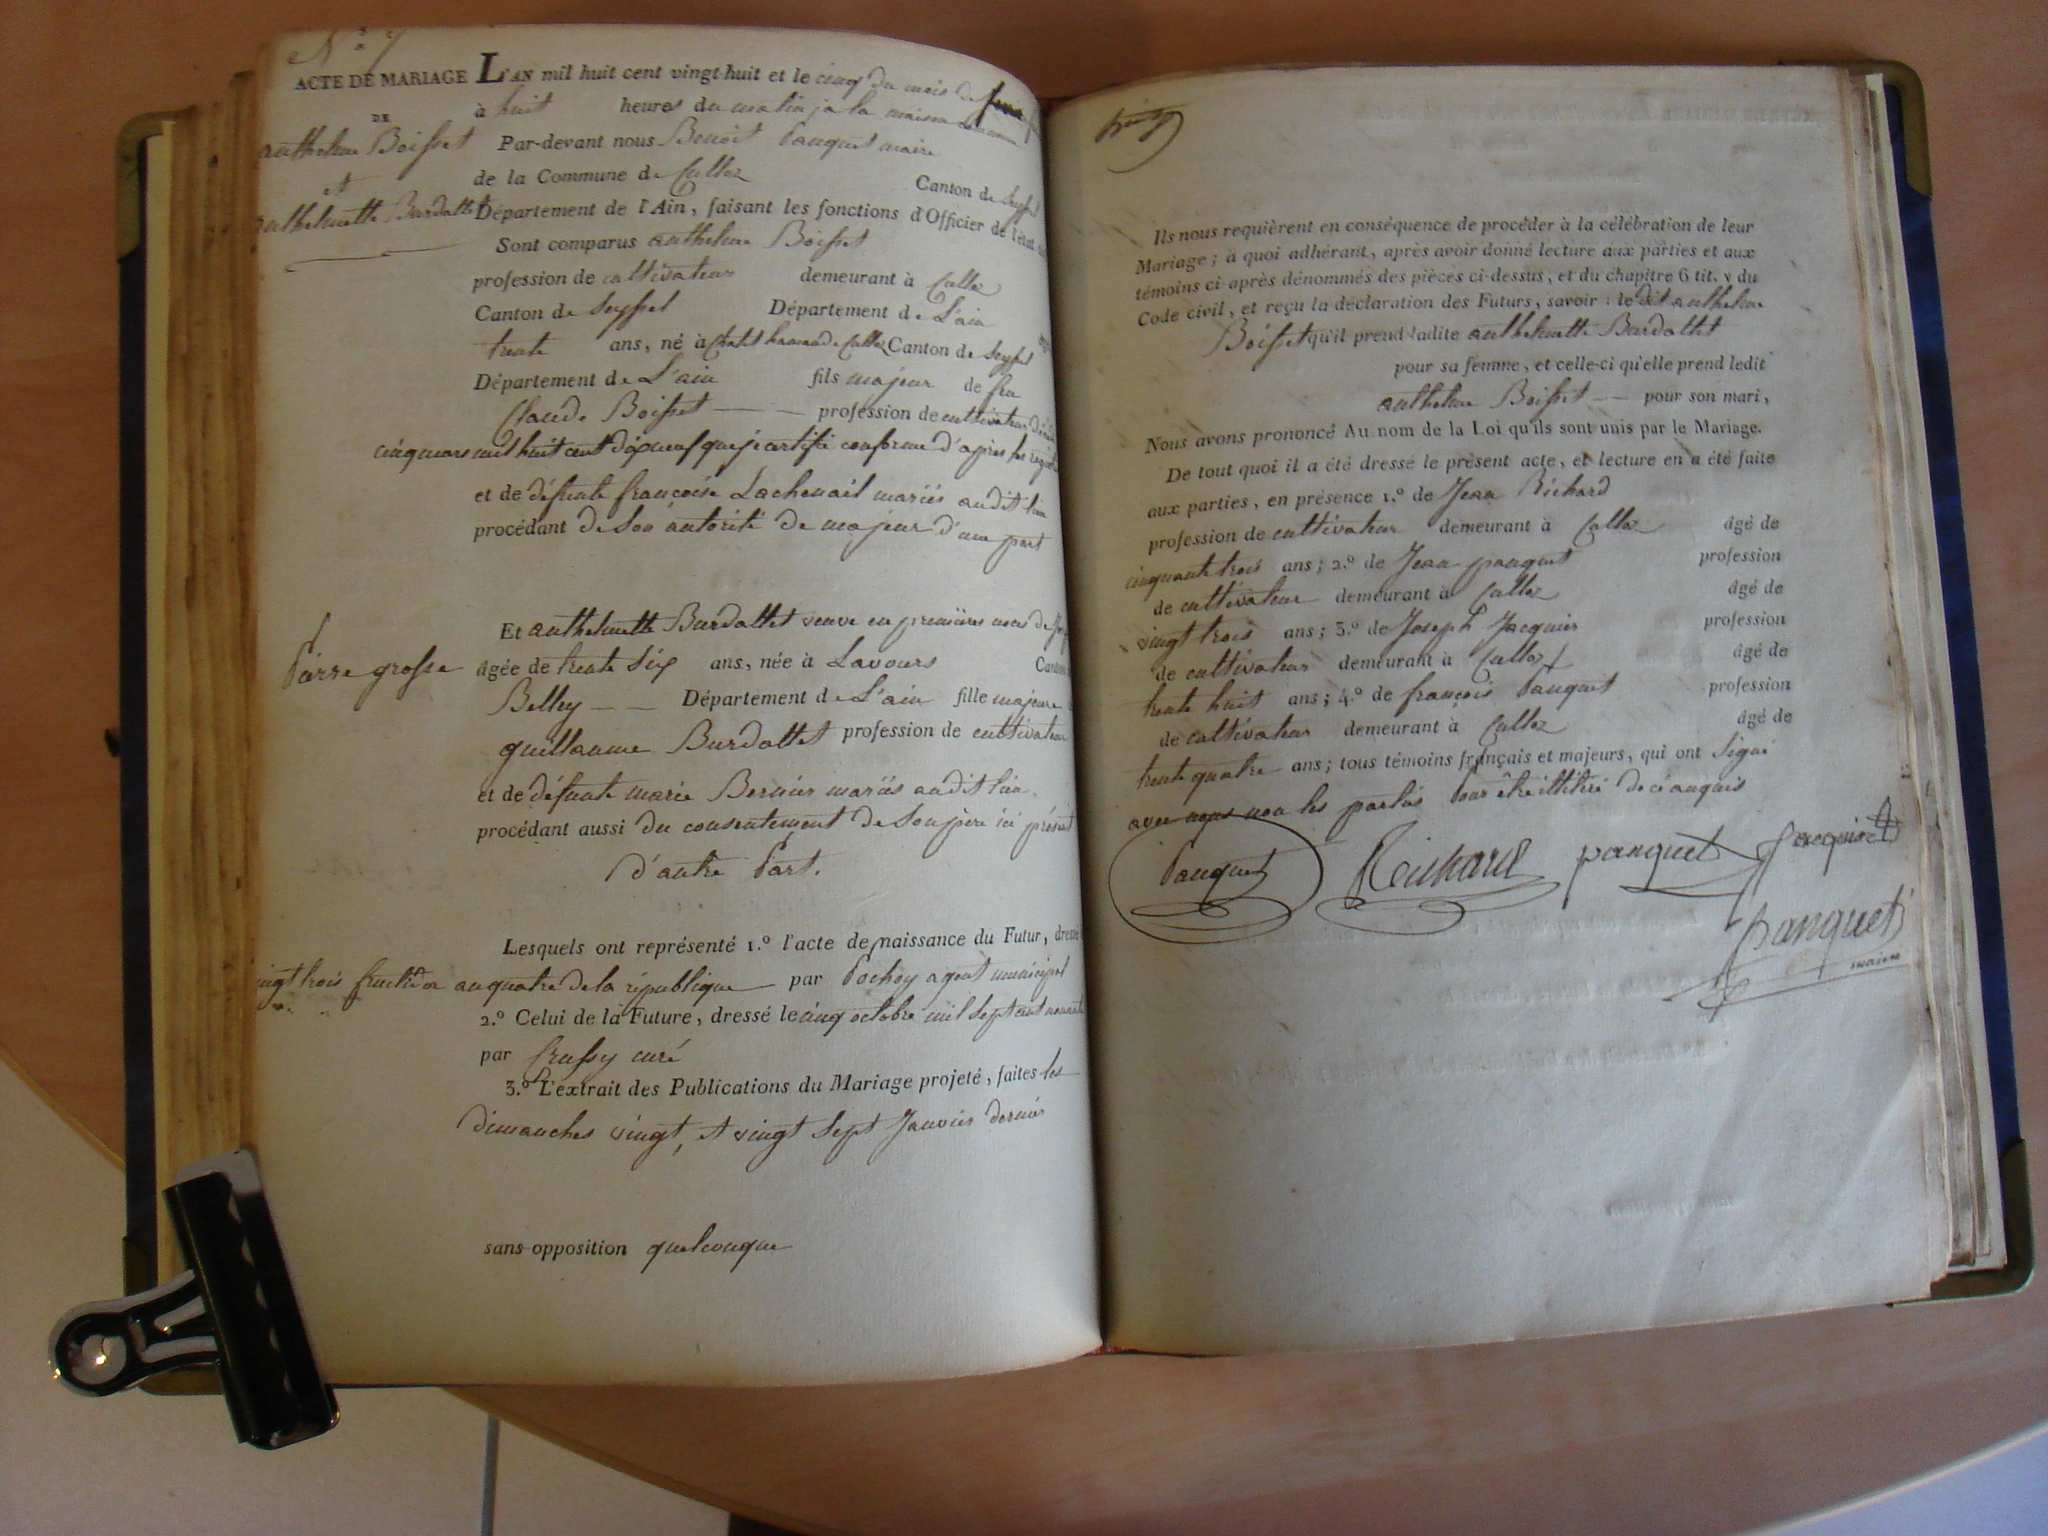 N° 7
ACTE DE MARIAGE
DE
anthelme Boisset
et
anthelmette Burdallet
L'AN mil huit cent vingt-huit et le cinq du mois de
à huit heures du matin, a la maison commune
Par-devant nous Benoit Pauquet maire
de la Commune de Culloz Canton de Seyssel
Département de l'Ain, faisant les fonctions d'Officier de l'état
Sont comparus anthelme Boisset
profession de cultivateur demeurant à Culloz
Canton de Seyssel Département de L'ain
trente ans, né à Culloz Canton de Seyssel
Département de L'ain fils majeur de feu
Claude Boisset profession de cultivateur
cinq mars mil huit cent dixneuf que je certifie conforme d'après les
et de défunte françoise Lachenail mariés audit lieu
procédant de Son autorité de majeur d'une part
Et anthelmette Burdallet veuve en premières noces de
Pierre grosse
âgée de trente Six ans, née à Lavours
Belley Département de L'ain fille majeure
guillaume Burdallet profession de cultivateur
et de défunte marie Bernier mariés audit lieu
procédant aussi du consentement de Son père ici présent
d'autre Part.
Lesquels ont représenté 1.° l'acte de naissance du Futur, dressé
vingt trois fructidor an quatre de la république par Pochoy agent municipal
2.° Celui de la Future, dressé le cinq octobre mil sept cent
par Crussy curé
3.° L'extrait des Publications du Mariage projeté, faites les
dimanches vingt, et vingt Sept Janvier dernier
sans opposition quelconque
Ils nous requièrent en conséquence de procéder à la célébration de leur
Mariage; à quoi adhérant, après avoir donné lecture aux parties et aux
témoins ci-après dénommés des pièces ci-dessus, et du chapitre 6 tit. v du
Code civil, et reçu la déclaration des Futurs, savoir: le dit anthelme
Boisset qu'il prend ladite anthelmette Burdallet
pour sa femme, et celle-ci qu'elle prend ledit
anthelme Boisset pour son mari,
Nous avons prononcé Au nom de la Loi qu'ils sont unis par le Mariage.
De tout quoi il a été dressé le présent acte, et lecture en a été faite
aux parties, en présence 1.° de Jean Richard
profession de cultivateur demeurant à Culloz âgé de
cinquante trois ans; 2.° de Jean pauquet profession
de cultivateur demeurant à Culloz âgé de
vingt trois ans; 3.° de Joseph Jacquier profession
de cultivateur demeurant à Culloz âgé de
trente huit ans; 4.° de françois Pauquet profession
de cultivateur demeurant à Culloz âgé de
trente quatre ans; tous témoins français et majeurs, qui ont Signé
avec nous non les parties Pour être illitéré de ce anquis
Pauquet Richard pauquet Jacquier
Pauquet
maire